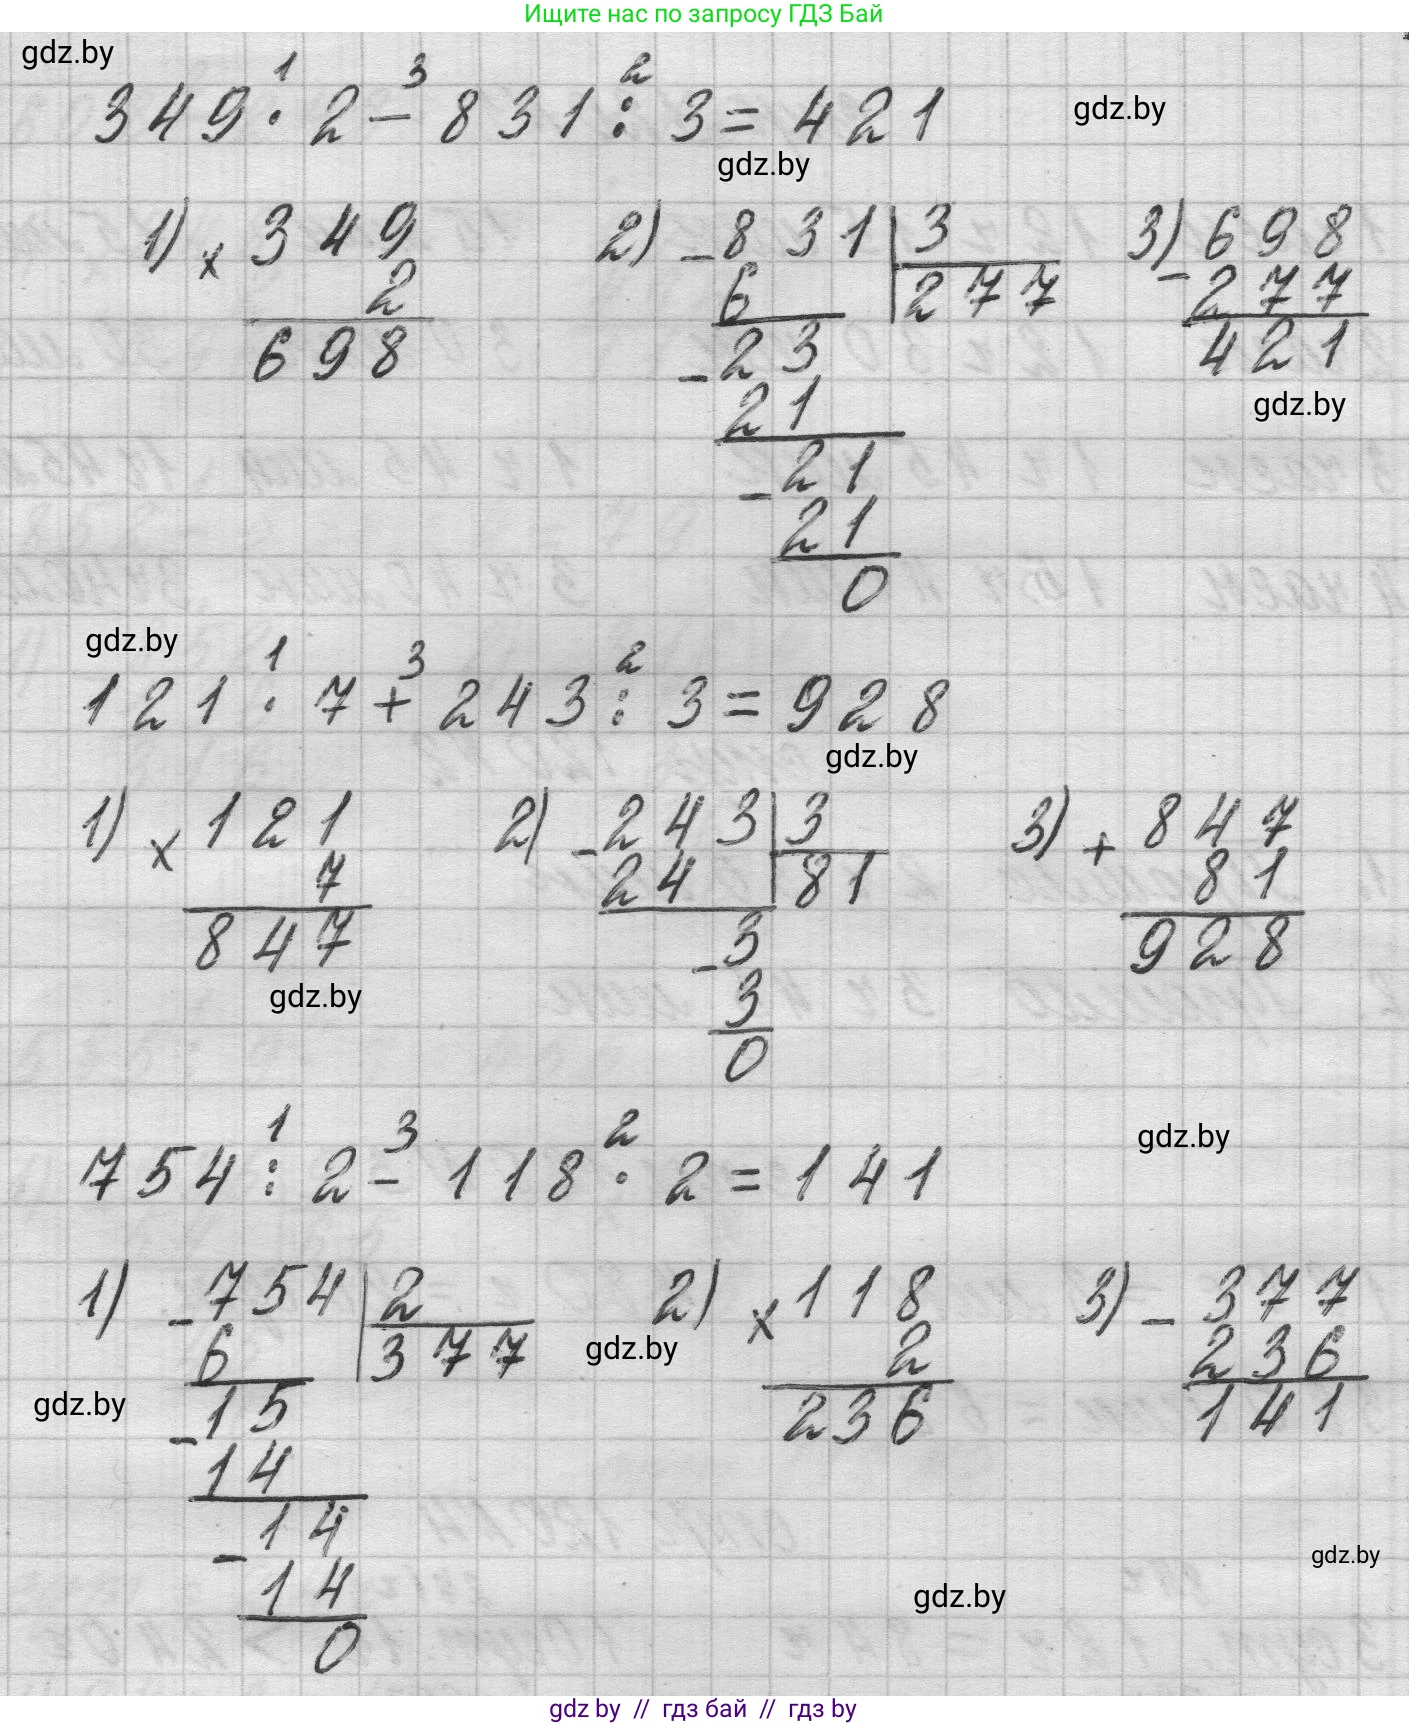 Ищите нас по запросу ГДЗ Бай
gdz.by
1 3 2
349 · 2 - 831 : 3 = 421
gdz.by
gdz.by
1) × 349
2
698
2) - 831 | 3
6 277
- 23
21
- 21
21
0
3) 698
- 277
421
gdz.by
gdz.by
1 3 2
121 · 7 + 243 : 3 = 928
gdz.by
1) × 121
7
847
gdz.by
2) - 243 | 3
24 81
- 3
3
0
3) + 847
81
928
gdz.by
1 3 2
754 : 2 - 118 · 2 = 141
1) - 754 | 2
6 377
- 15
14
- 14
14
0
gdz.by
gdz.by
2) × 118
2
236
3) - 377
236
141
gdz.by
gdz.by
gdz by // гдз бай // гдз by